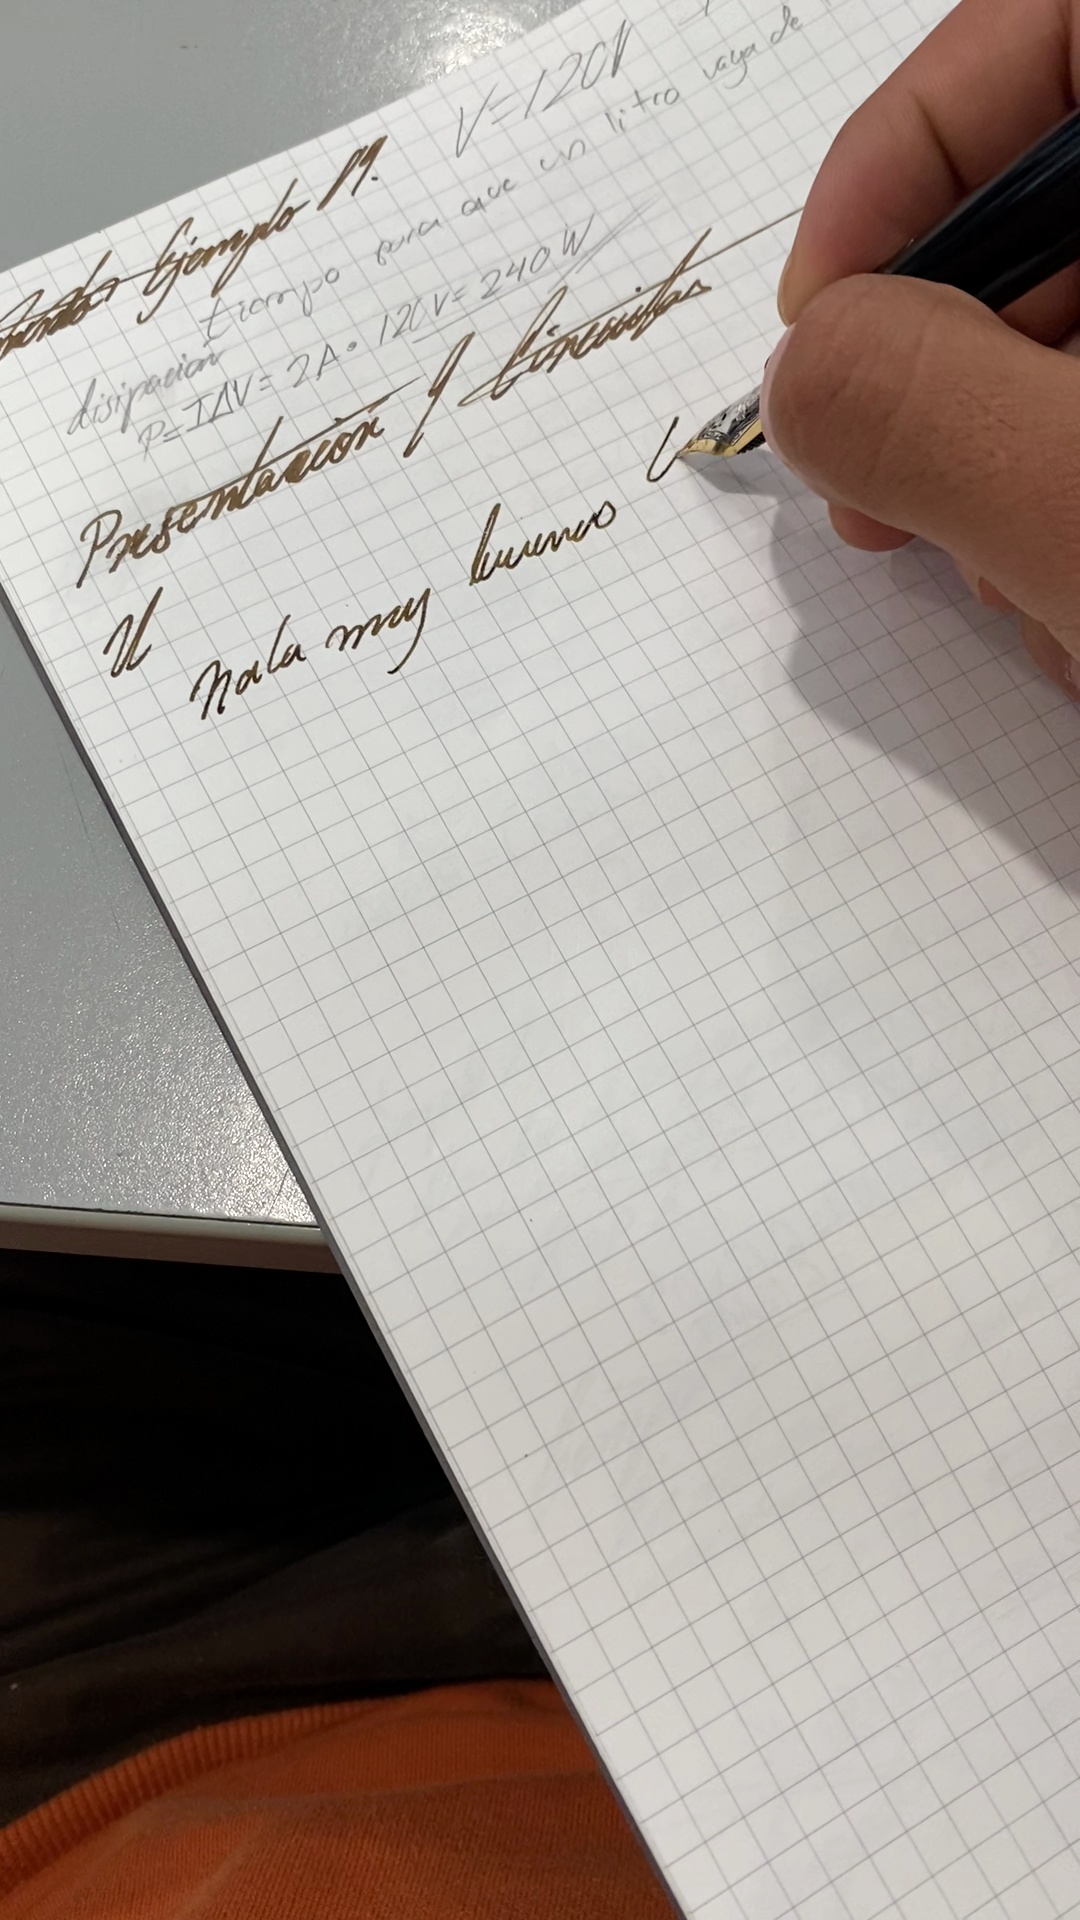 V=120V
Ejemplo 19.
tiempo para que un litro vaya de
disipación
P=IΔV= 2A • 120V= 240W
Presentación y Circuitos
Hola muy buenas